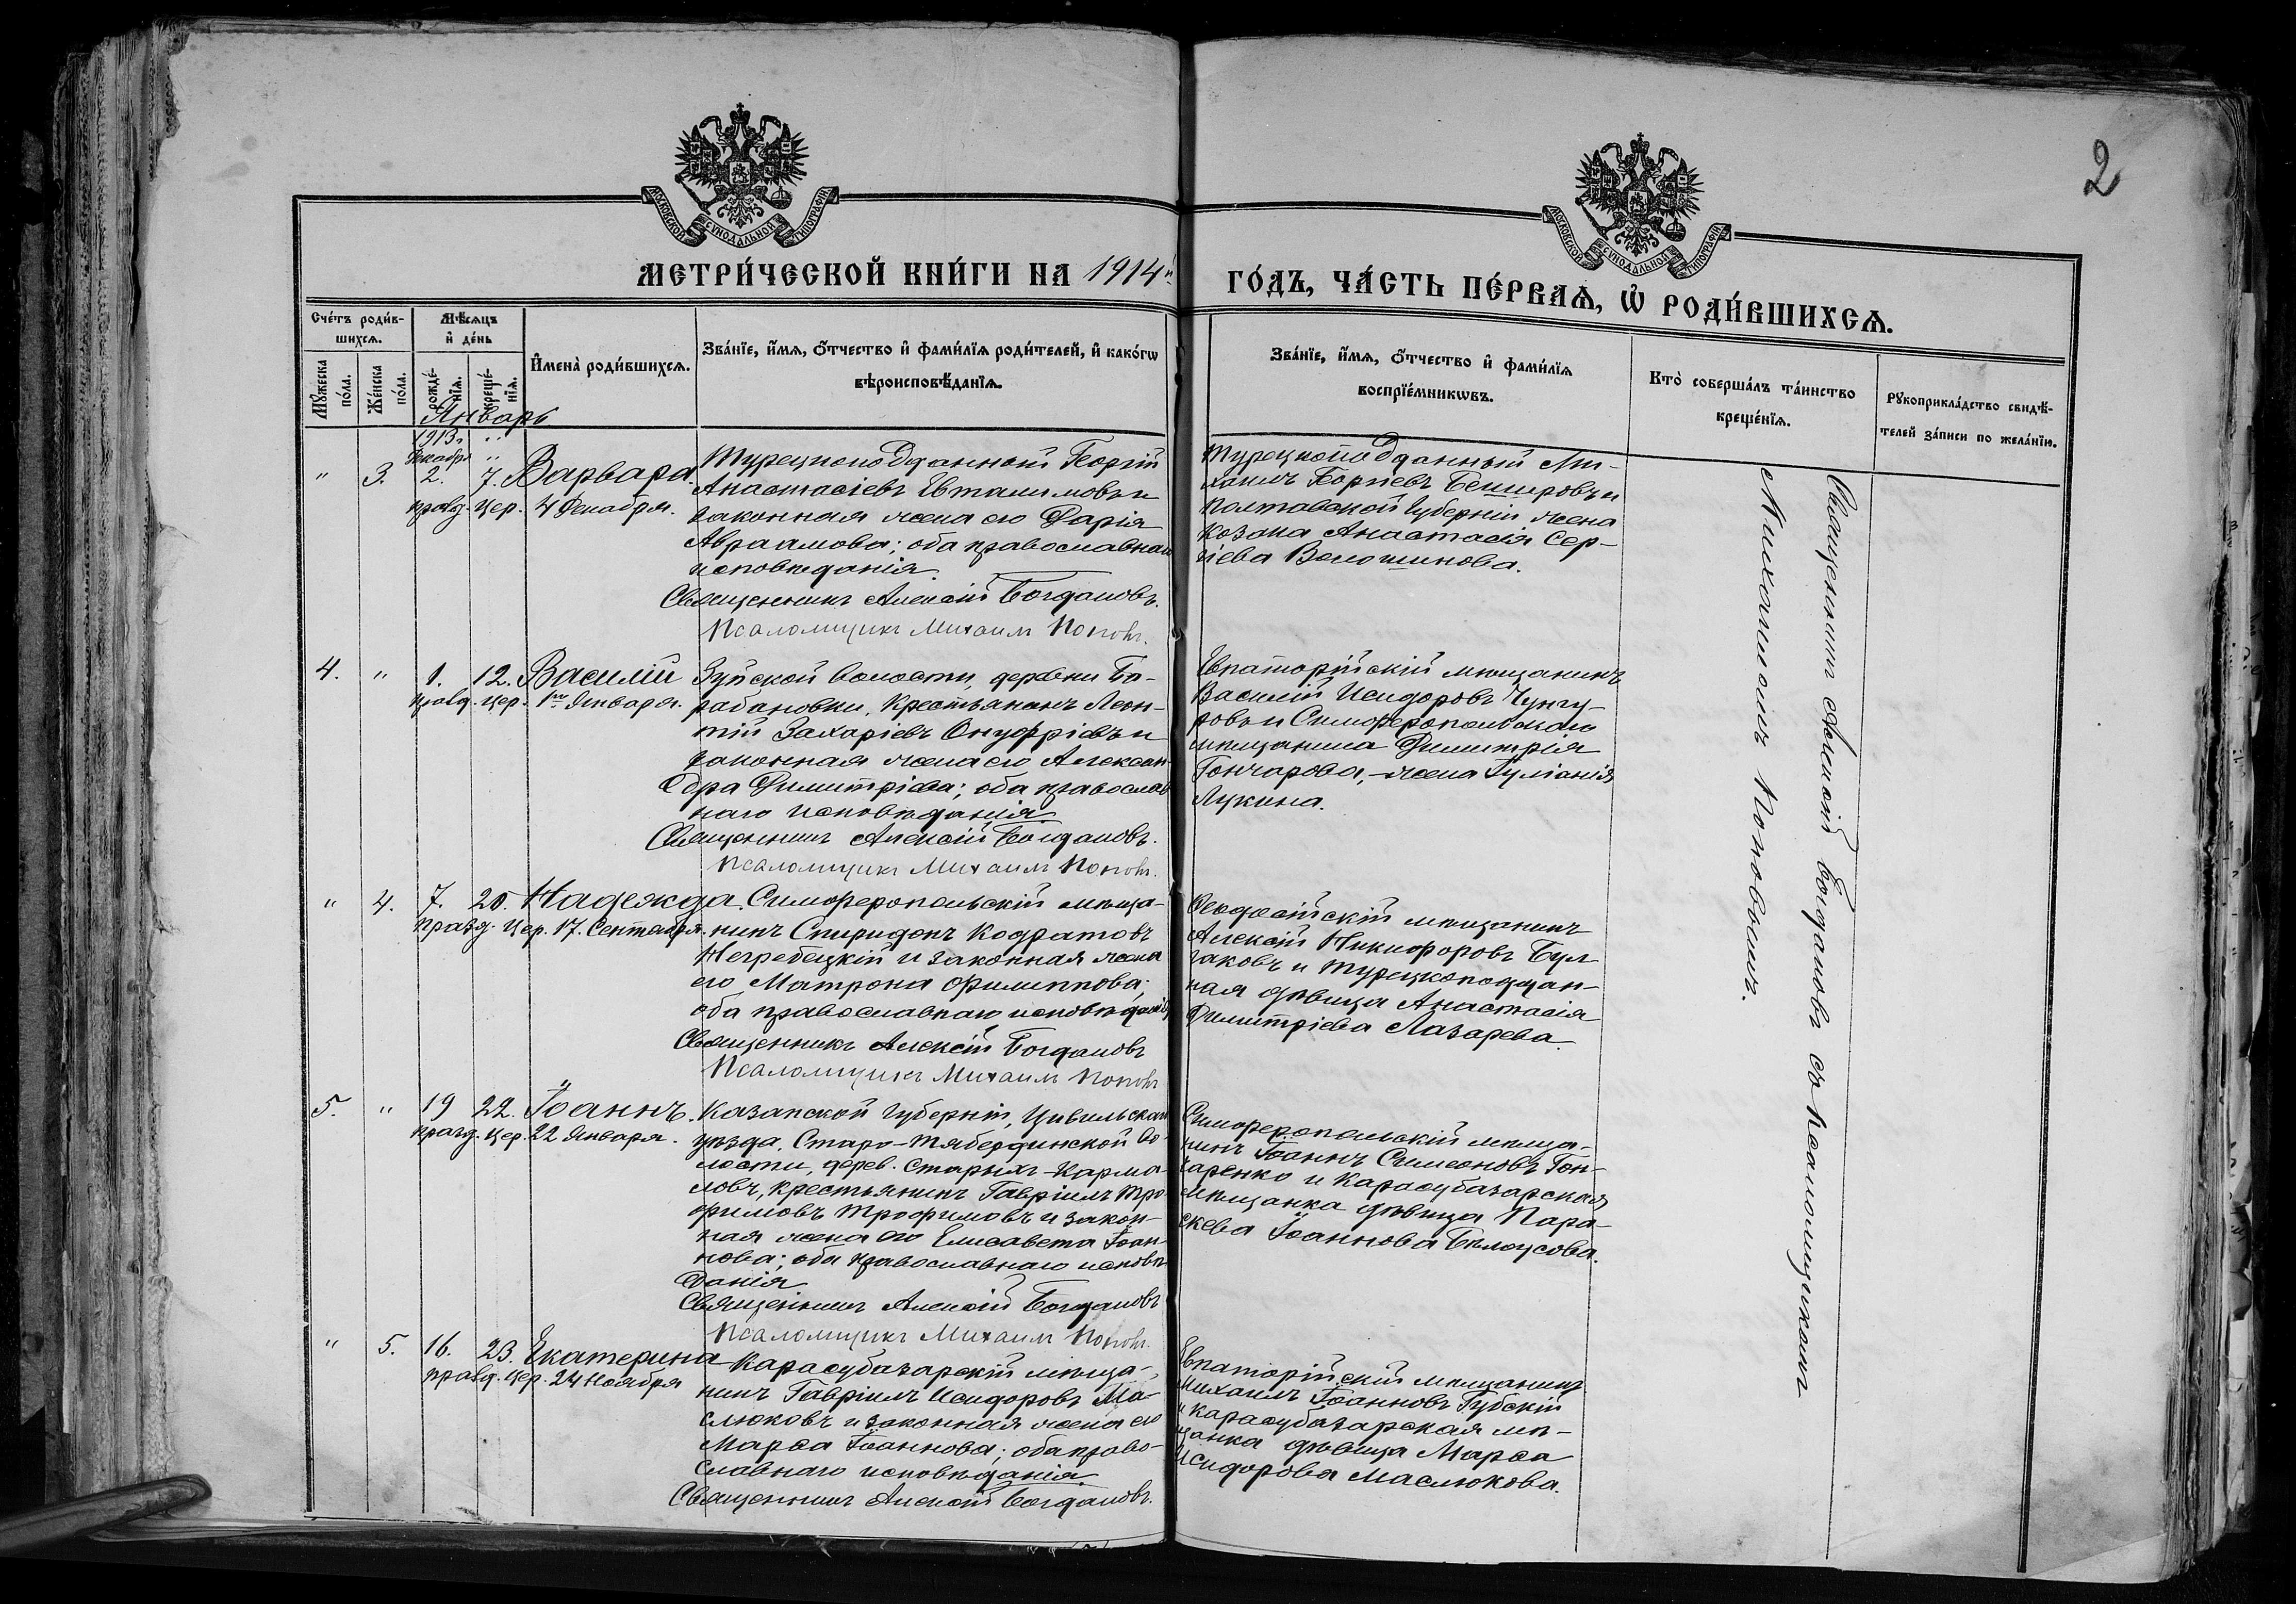 2
МОСКОВСКОЙ СѴНОДАЛЬНОЙ ТИПОГРАФІИ
МОСКОВСКОЙ СѴНОДАЛЬНОЙ ТИПОГРАФІИ
МЕТРИ́ЧЕСКОЙ КНИ́ГИ НА 1914 й
ГО́ДЪ, ЧА́СТЬ ПЕ́РВАѦ, Ѡ҆ РОДИ́ВШИХСѦ.
Сче́тъ роди́в-
шихсѧ.
Мꙋ́жеска по́ла.
Же́нска по́ла.
Мѣ́сѧцъ
и҆ де́нь
рожде́-
нїѧ.
креще́-
нїѧ.
И҆мена̀ роди́вшихсѧ.
Зва́нїе, и҆́мѧ, ѻ҆́тчество и҆ фами́лїѧ роди́телей, и҆ како́гѡ
вѣроисповѣ́данїѧ.
Зва́нїе, и҆́мѧ, ѻ҆́тчество и҆ фами́лїѧ
воспрїе́мникѡвъ.
Кто̀ соверша́лъ та́инство
креще́нїѧ.
Рꙋкоприкла́дство свидѣ́-
телей за́писи по жела́нїю.
Январь
1913 г. "
Декабря "
" 3. 2. 7. Варвара.
празд. цер. 4 Декабря.
Турецкоподданный Георгій
Анастасіевъ Евталимовъ и
законная жена его Дарія
Авраамова; оба православнаго
исповѣданія.
Священникъ Алексій Богдановъ.
Псаломщикъ Михаилъ Поповъ.
Турецкоподданный Ми-
хаилъ Георгіевъ Бешировъ и
Полтавской губерніи жена
козака Анастасія Сер-
гіева Волошинова.
4. " 1. 12. Василій
празд. цер. 1го Января.
Зуйской волости, деревни Ба-
рабановки, крестьянинъ Леон-
тій Захаріевъ Онуфріевъ и
законная жена его Алексан-
дра Димитріева; оба православ
наго исповѣданія.
Священникъ Алексій Богдановъ.
Псаломщикъ Михаилъ Поповъ.
Евпаторійскій мѣщанинъ
Василій Исидоровъ Чунгу-
ровъ и Симферопольскаго
мѣщанина Димитрія
Гончарова, - жена Іуліанія
Лукина.
" 4. 7. 20. Надежда.
празд. цер. 17. Сентября.
Симферопольскій мѣща-
нинъ Спиридонъ Кодратовъ
Негребецкій и законная жена
его Матрона Филиппова;
оба православнаго исповѣданія
Священникъ Алексій Богдановъ
Псаломщикъ Михаилъ Поповъ
Ѳеодосійскій мѣщанинъ
Алексій Никифоровъ Бул
гаковъ и турецкоподдан-
ная дѣвица Анастасія
Димитріева Лазарева.
5. " 19 22. Іоаннъ.
празд. цер. 22 Января.
Казанской губерніи, Цивильскаго
уѣзда, Старо-Тябердинской во-
лости, дерев. Старыхъ-Карма-
ловъ, крестьянинъ Гавріилъ Тро-
фимовъ Трофимовъ и закон-
ная жена его Елисавета Іоан-
нова; оба православнаго исповѣ
данія
Священникъ Алексій Богдановъ
Псаломщикъ Михаилъ Поповъ.
Симферопольскій мѣща-
нинъ Іоаннъ Симеоновъ Гон-
чаренко и Карасубазарская
мѣщанка дѣвица Пара-
скева Іоаннова Бѣлоусова.
" 5. 16. 23. Екатерина
празд. цер. 24 Ноября
Карасубазарскій мѣща-
нинъ Гавріилъ Исидоровъ Ма-
слюковъ и законная жена его
Марѳа Іоаннова; оба право-
славнаго исповѣданія.
Священникъ Алексій Богдановъ.
Евпаторійскій мѣщанинъ
Михаилъ Іоанновъ Губскій
и карасубазарская мѣ-
щанка дѣвица Марѳа
Исидорова Маслюкова.
Священникъ Алексій Богдановъ съ псаломщикомъ
Михаиломъ Поповымъ.